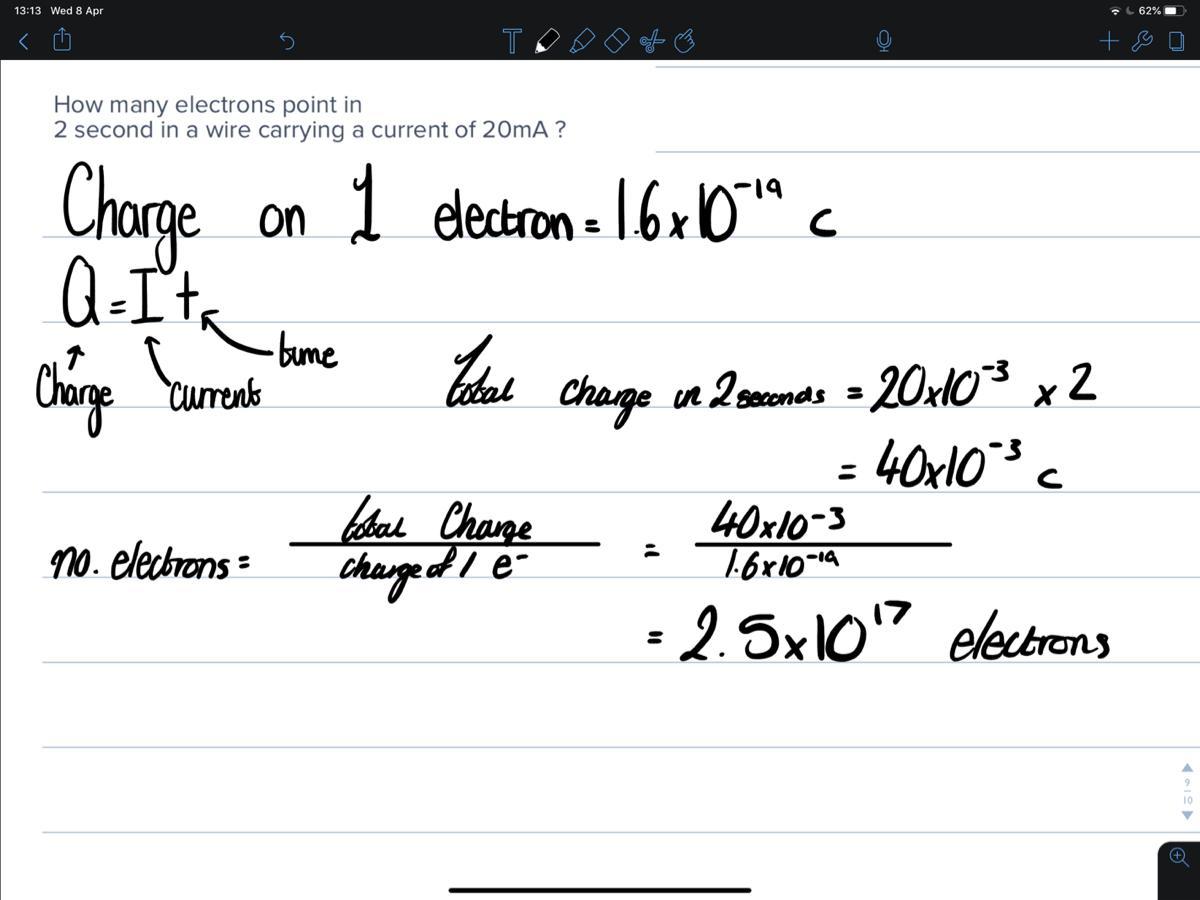 13:13 Wed 8 Apr
62%
T
How many electrons point in
2 second in a wire carrying a current of 20mA ?
Charge on 1 electron = 1.6 x 10⁻¹⁹ C
Q = It
time
Charge
current
total charge in 2 seconds = 20x10⁻³ x 2
= 40x10⁻³ C
no. electrons = total Charge / charge of 1 e⁻ = 40x10⁻³ / 1.6x10⁻¹⁹
= 2.5x10¹⁷ electrons
9
10